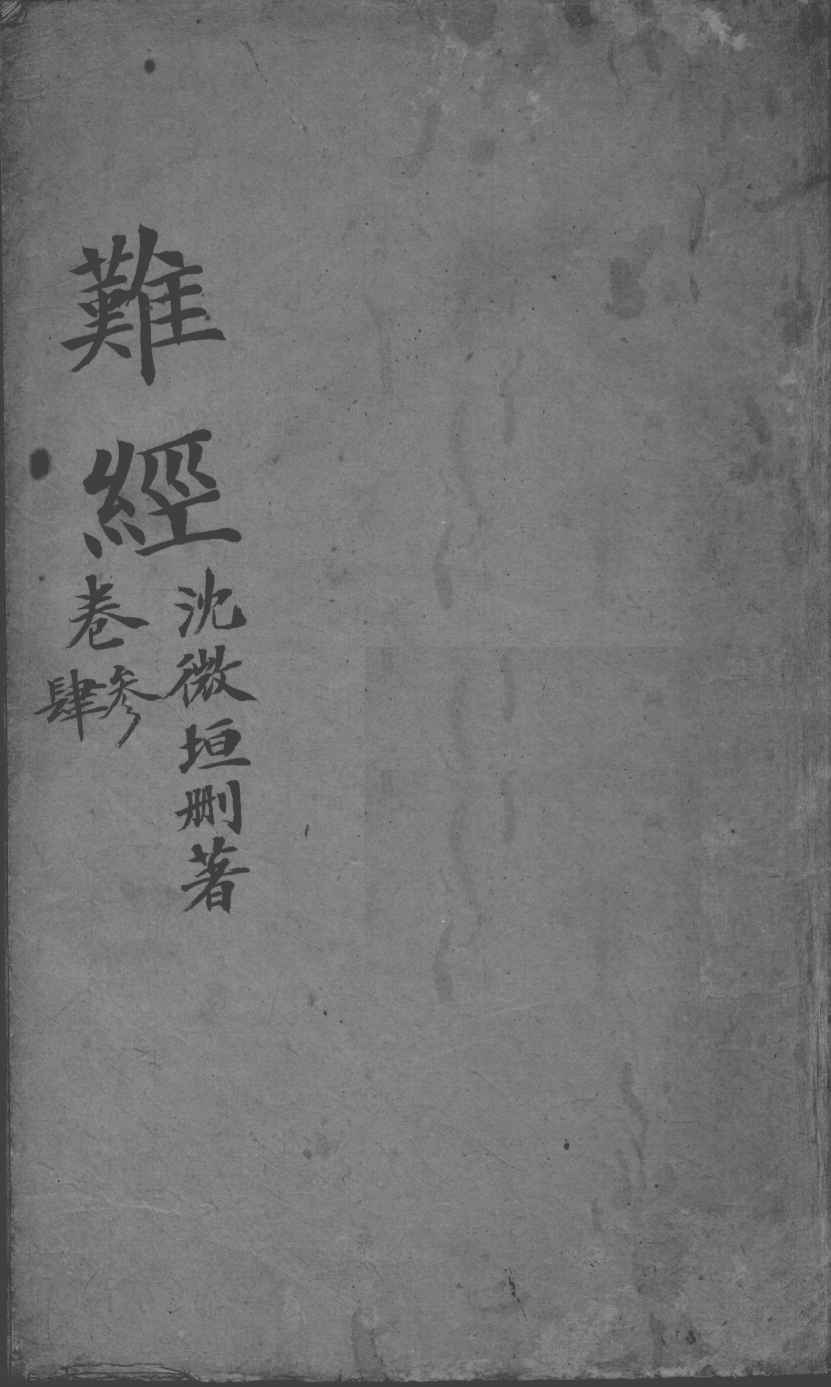 沈微垣刪著
難經卷參
肆